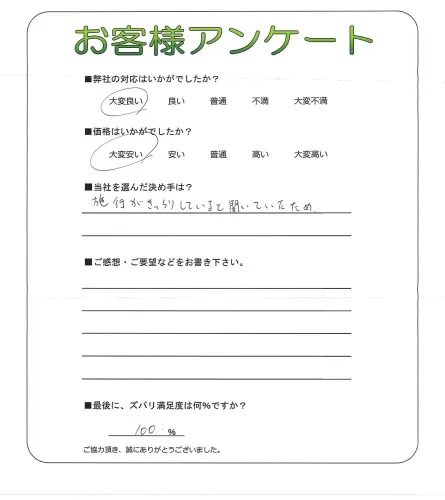 お客様アンケート
■弊社の対応はいかがでしたか?
大変良い 良い 普通 不満 大変不満
■価格はいかがでしたか?
大変安い 安い 普通 高い 大変高い
■当社を選んだ決め手は?
施行がきっちりしていると聞いていたため.
■ご感想・ご要望などをお書き下さい。
■最後に、ズバリ満足度は何%ですか?
100.%
ご協力頂き、誠にありがとうございました。